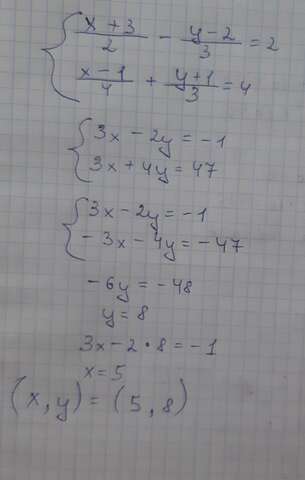 (x + 3)/2 - (y - 2)/3 = 2
(x - 1)/4 + (y + 1)/3 = 4
3x - 2y = -1
3x + 4y = 47
3x - 2y = -1
- 3x - 4y = - 47
- 6y = - 48
y = 8
3x - 2 • 8 = - 1
x = 5
(x, y) = (5, 8)